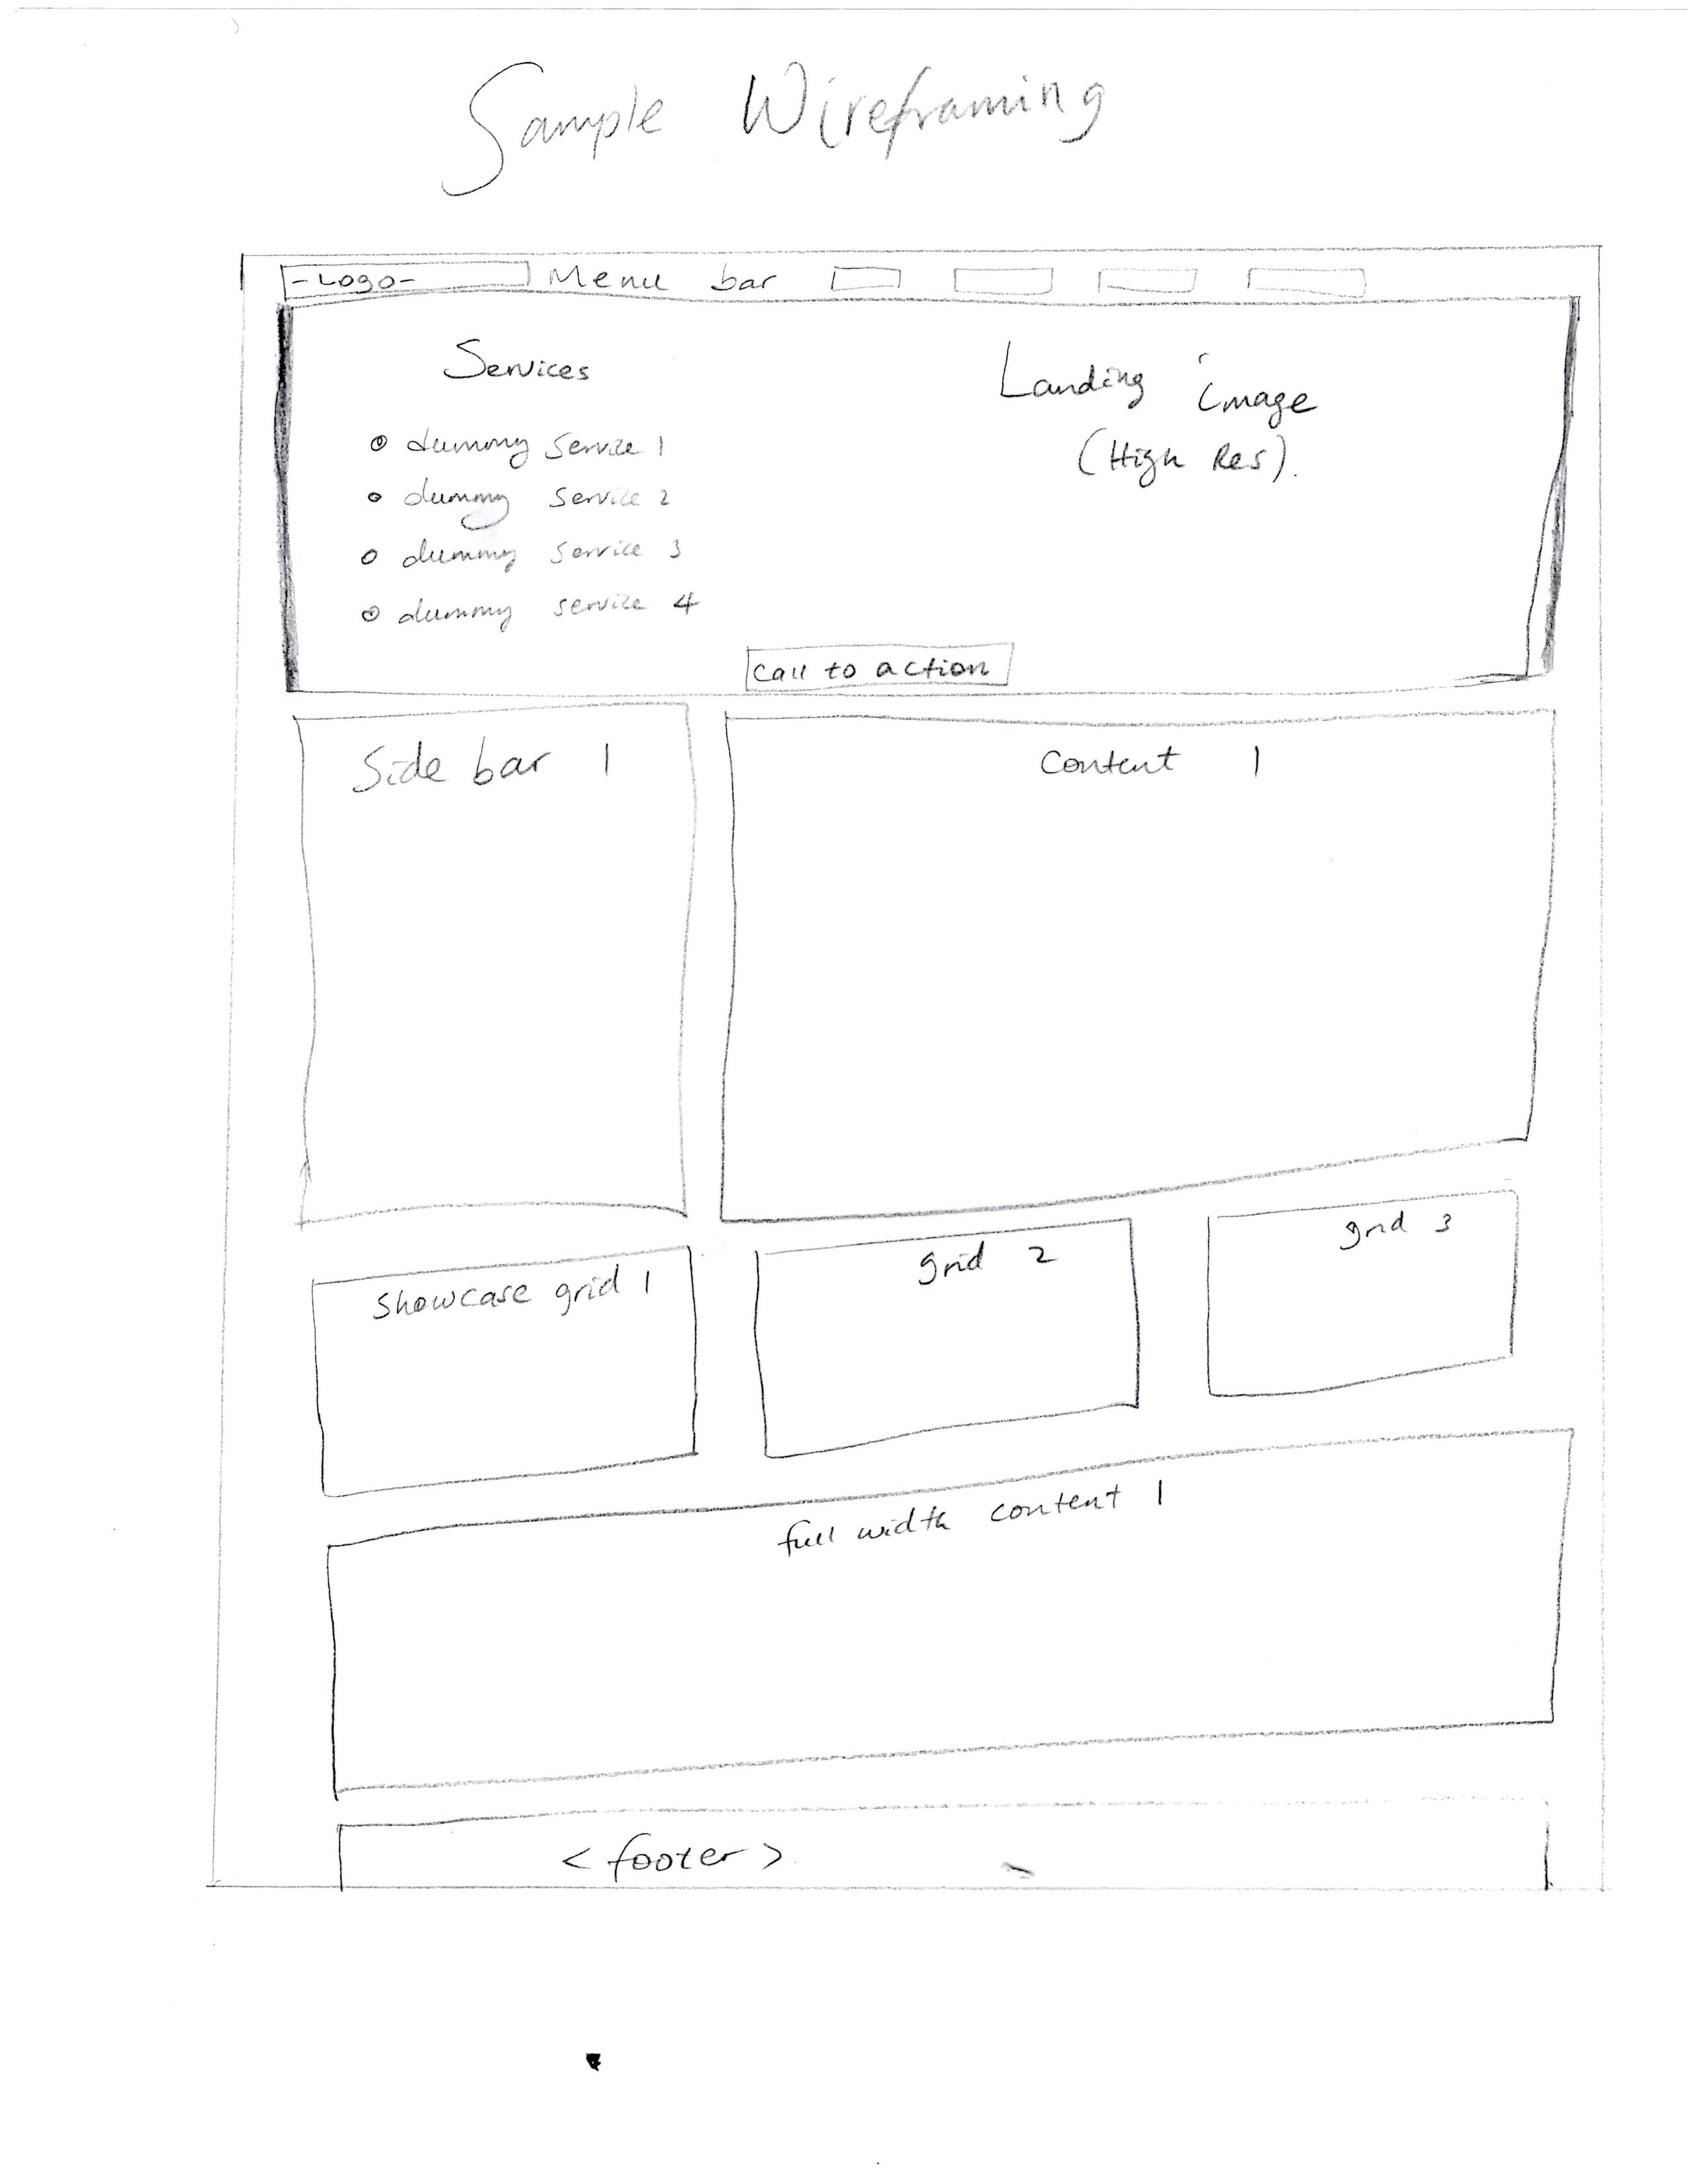 Sample Wireframing
-Logo- Menu bar
Services
dummy service 1
dummy service 2
dummy service 3
dummy service 4
Landing image
(High Res).
Call to action
Side bar 1
Content 1
Showcase grid 1
grid 2
grid 3
full width content 1
<footer>